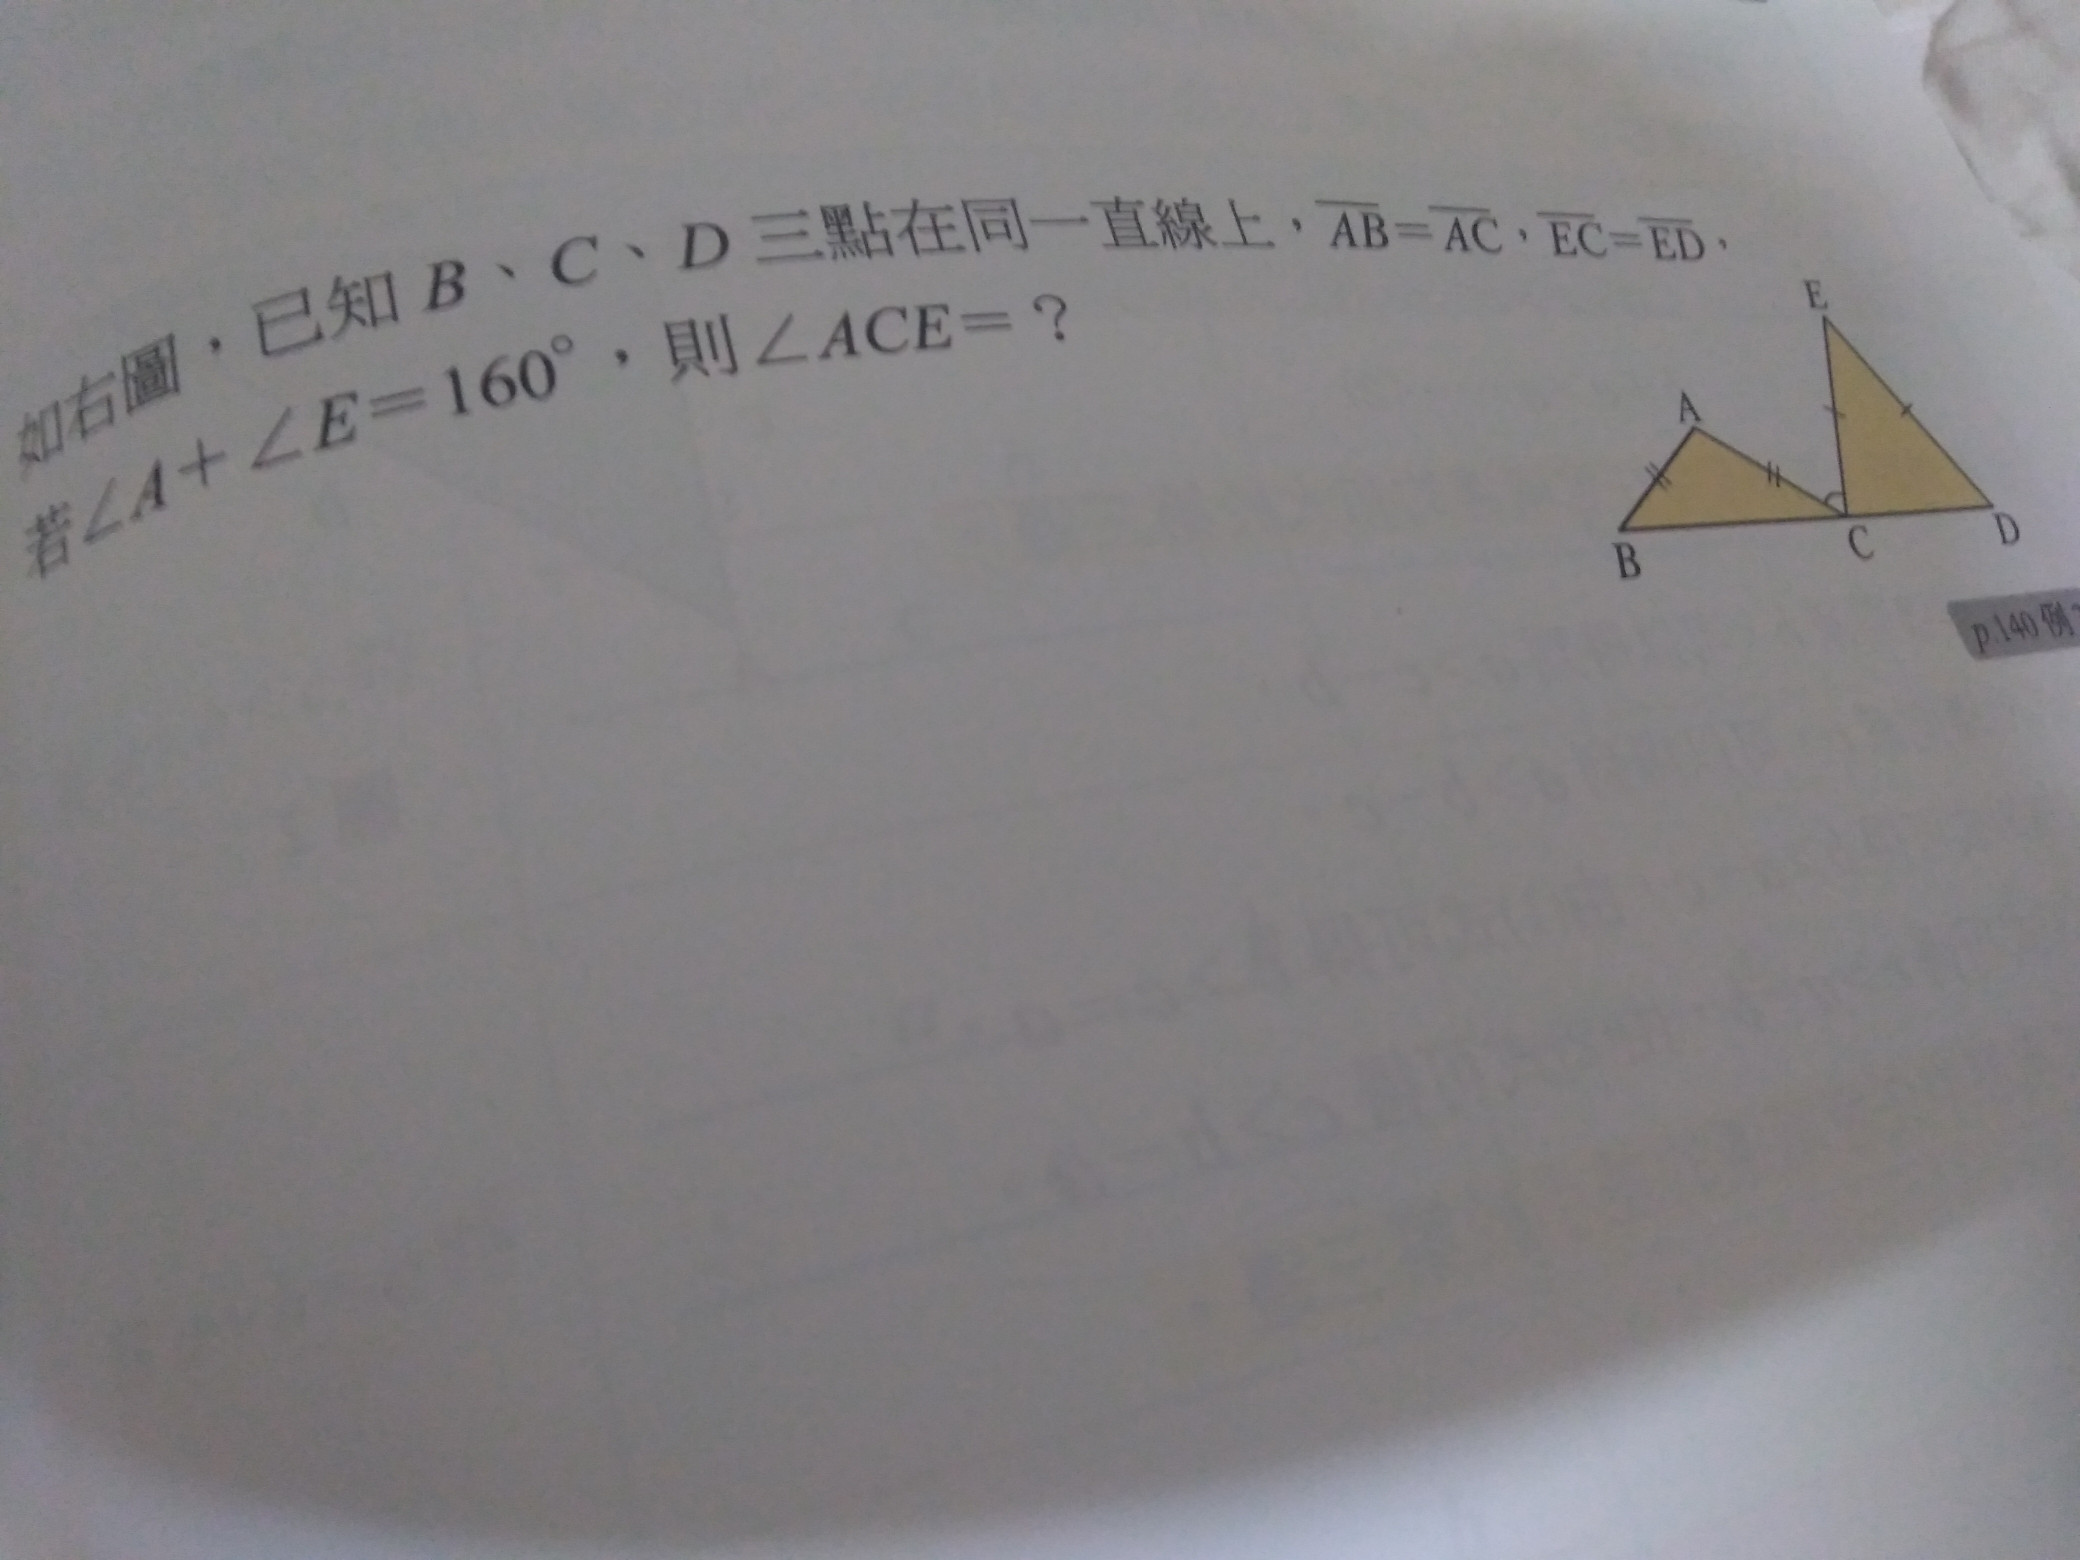 如右圖，已知 B、C、D 三點在同一直線上，AB=AC，EC=ED，
若∠A+∠E=160°，則∠ACE=？
E
A
B
C
D
p.140 例